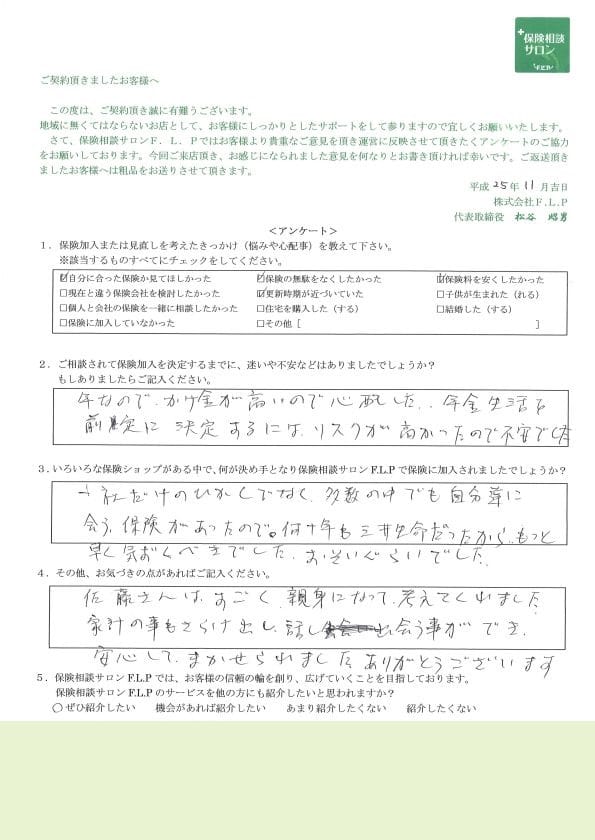 保険相談
サロン
F.L.P
ご契約頂きましたお客様へ
この度は、ご契約頂き誠に有難うございます。
地域に無くてはならないお店として、お客様にしっかりとしたサポートをして参りますので宜しくお願いいたします。
さて、保険相談サロンF．L．Pではお客様より貴重なご意見を頂き運営に反映させて頂きたくアンケートのご協力
をお願いしております。今回ご来店頂き、お感じになられました意見を何なりとお書き頂ければ幸いです。ご返送頂き
ましたお客様へは粗品をお送りさせて頂きます。
平成 25年 11月吉日
株式会社F.L.P
代表取締役 松谷 昭男
＜アンケート＞
1．保険加入または見直しを考えたきっかけ（悩みや心配事）を教えて下さい。
※該当するものすべてにチェックをしてください。
☑自分に合った保険か見てほしかった ☑保険の無駄をなくしたかった ☑保険料を安くしたかった
□現在と違う保険会社を検討したかった ☑更新時期が近づいていた □子供が生まれた（れる）
□個人と会社の保険を一緒に相談したかった □住宅を購入した（する） □結婚した（する）
□保険に加入していなかった □その他［ ］
2．ご相談されて保険加入を決定するまでに、迷いや不安などはありましたでしょうか？
もしありましたらご記入ください。
年なので、かけ金が高いので心配した．．年金生活を
前提に 決定するには、リスクが高かったので不安でした
3．いろいろな保険ショップがある中で、何が決め手となり保険相談サロンF.L.Pで保険に加入されましたでしょうか？
社だけのひかしでなく、多数の中でも自分達に
会う、保険があったので。何十年も三井生命だったから、もっと
早く気おくべきでした、おそいぐらいでした。
4．その他、お気づきの点があればご記入ください。
佐藤さんは、すごく、親身になって、考えてくれました
家計の事もさらけ出し、話し 会う事ができ、
安心して、まかせられました。ありがとうございます
5．保険相談サロンF.L.Pでは、お客様の信頼の輪を創り、広げていくことを目指しております。
保険相談サロンF.L.Pのサービスを他の方にも紹介したいと思われますか？
○ぜひ紹介したい 機会があれば紹介したい あまり紹介したくない 紹介したくない